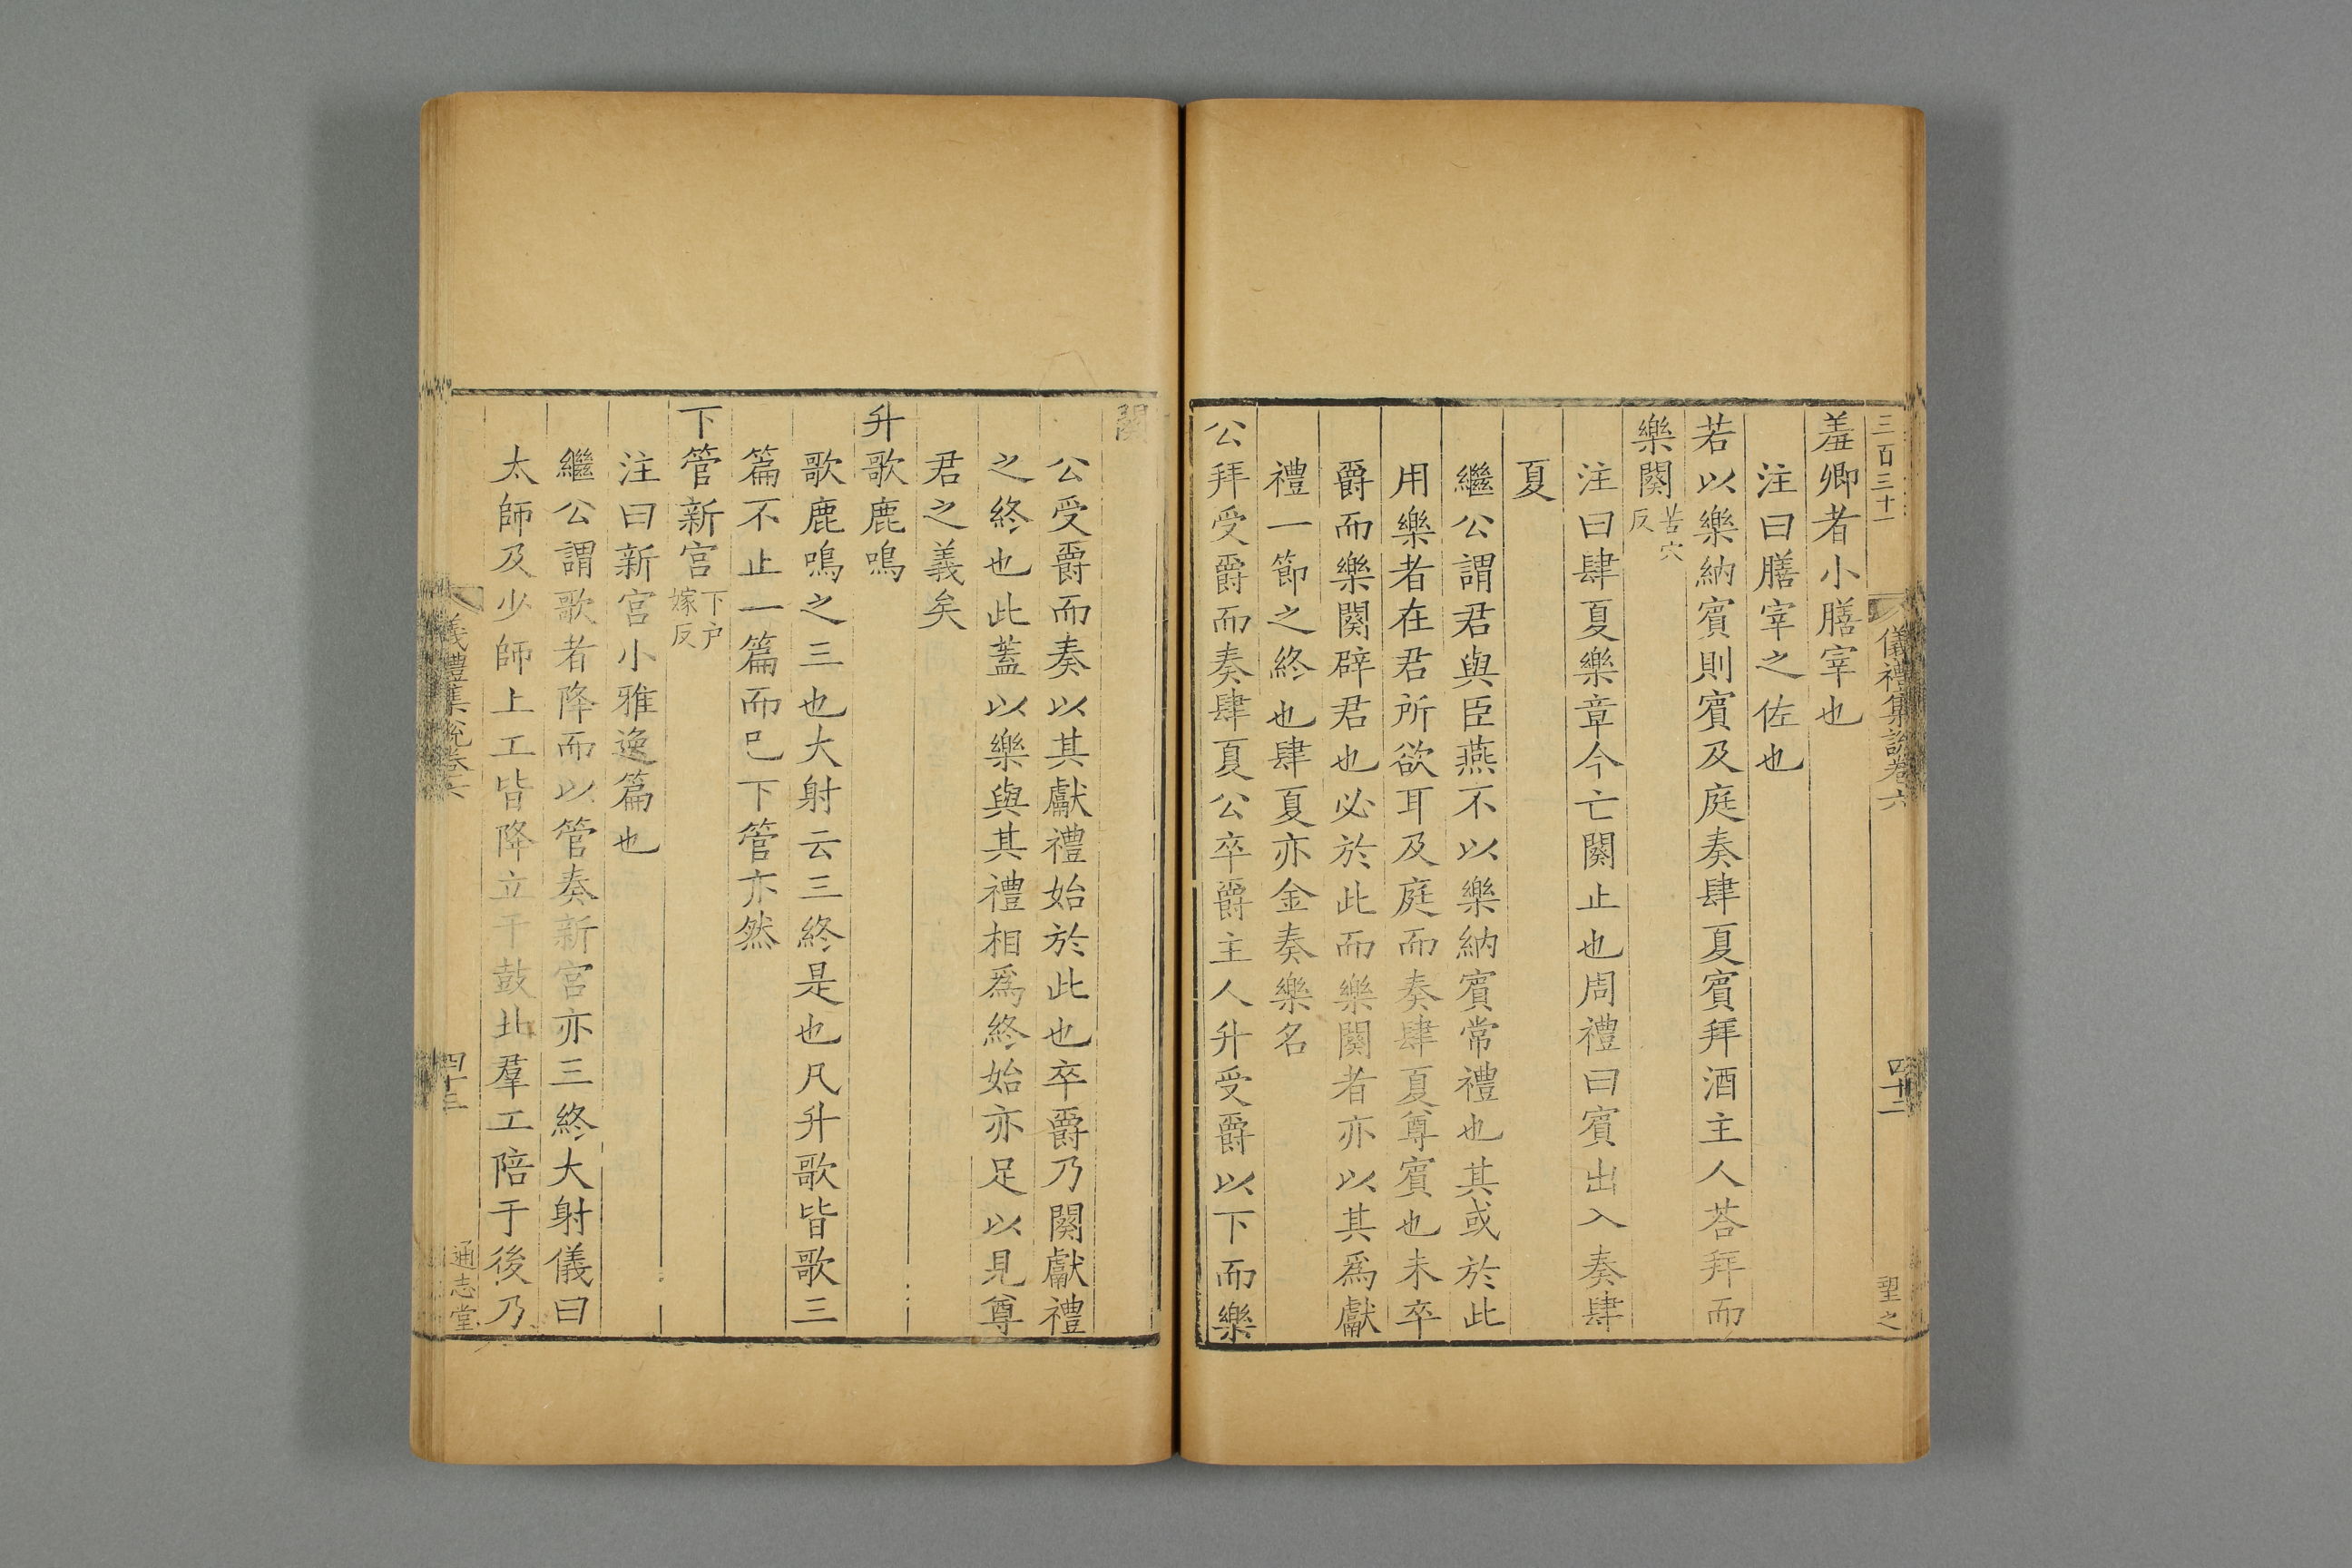 三百三十一
儀禮集說卷六
四十二
望之
羞卿者小膳宰也
注曰膳宰之佐也
若以樂納賓則賓及庭奏肆夏賓拜酒主人荅拜而
樂闋苦穴反
注曰肆夏樂章今亡闋止也周禮曰賓出入奏肆
夏
繼公謂君與臣燕不以樂納賓常禮也其或於此
用樂者在君所欲耳及庭而奏肆夏尊賓也未卒
爵而樂闋辟君也必於此而樂闋者亦以其爲獻
禮一節之終也肆夏亦金奏樂名
公拜受爵而奏肆夏公卒爵主人升受爵以下而樂
闋
公受爵而奏以其獻禮始於此也卒爵乃闋獻禮
之終也此蓋以樂與其禮相爲終始亦足以見尊
君之義矣
升歌鹿鳴
歌鹿鳴之三也大射云三終是也凡升歌皆歌三
篇不止一篇而巳下管亦然
下管新宮下戶嫁反
注曰新宮小雅逸篇也
繼公謂歌者降而以管奏新宮亦三終大射儀曰
太師及少師上工皆降立于鼓北羣工陪于後乃
儀禮集說卷六
四十三
通志堂